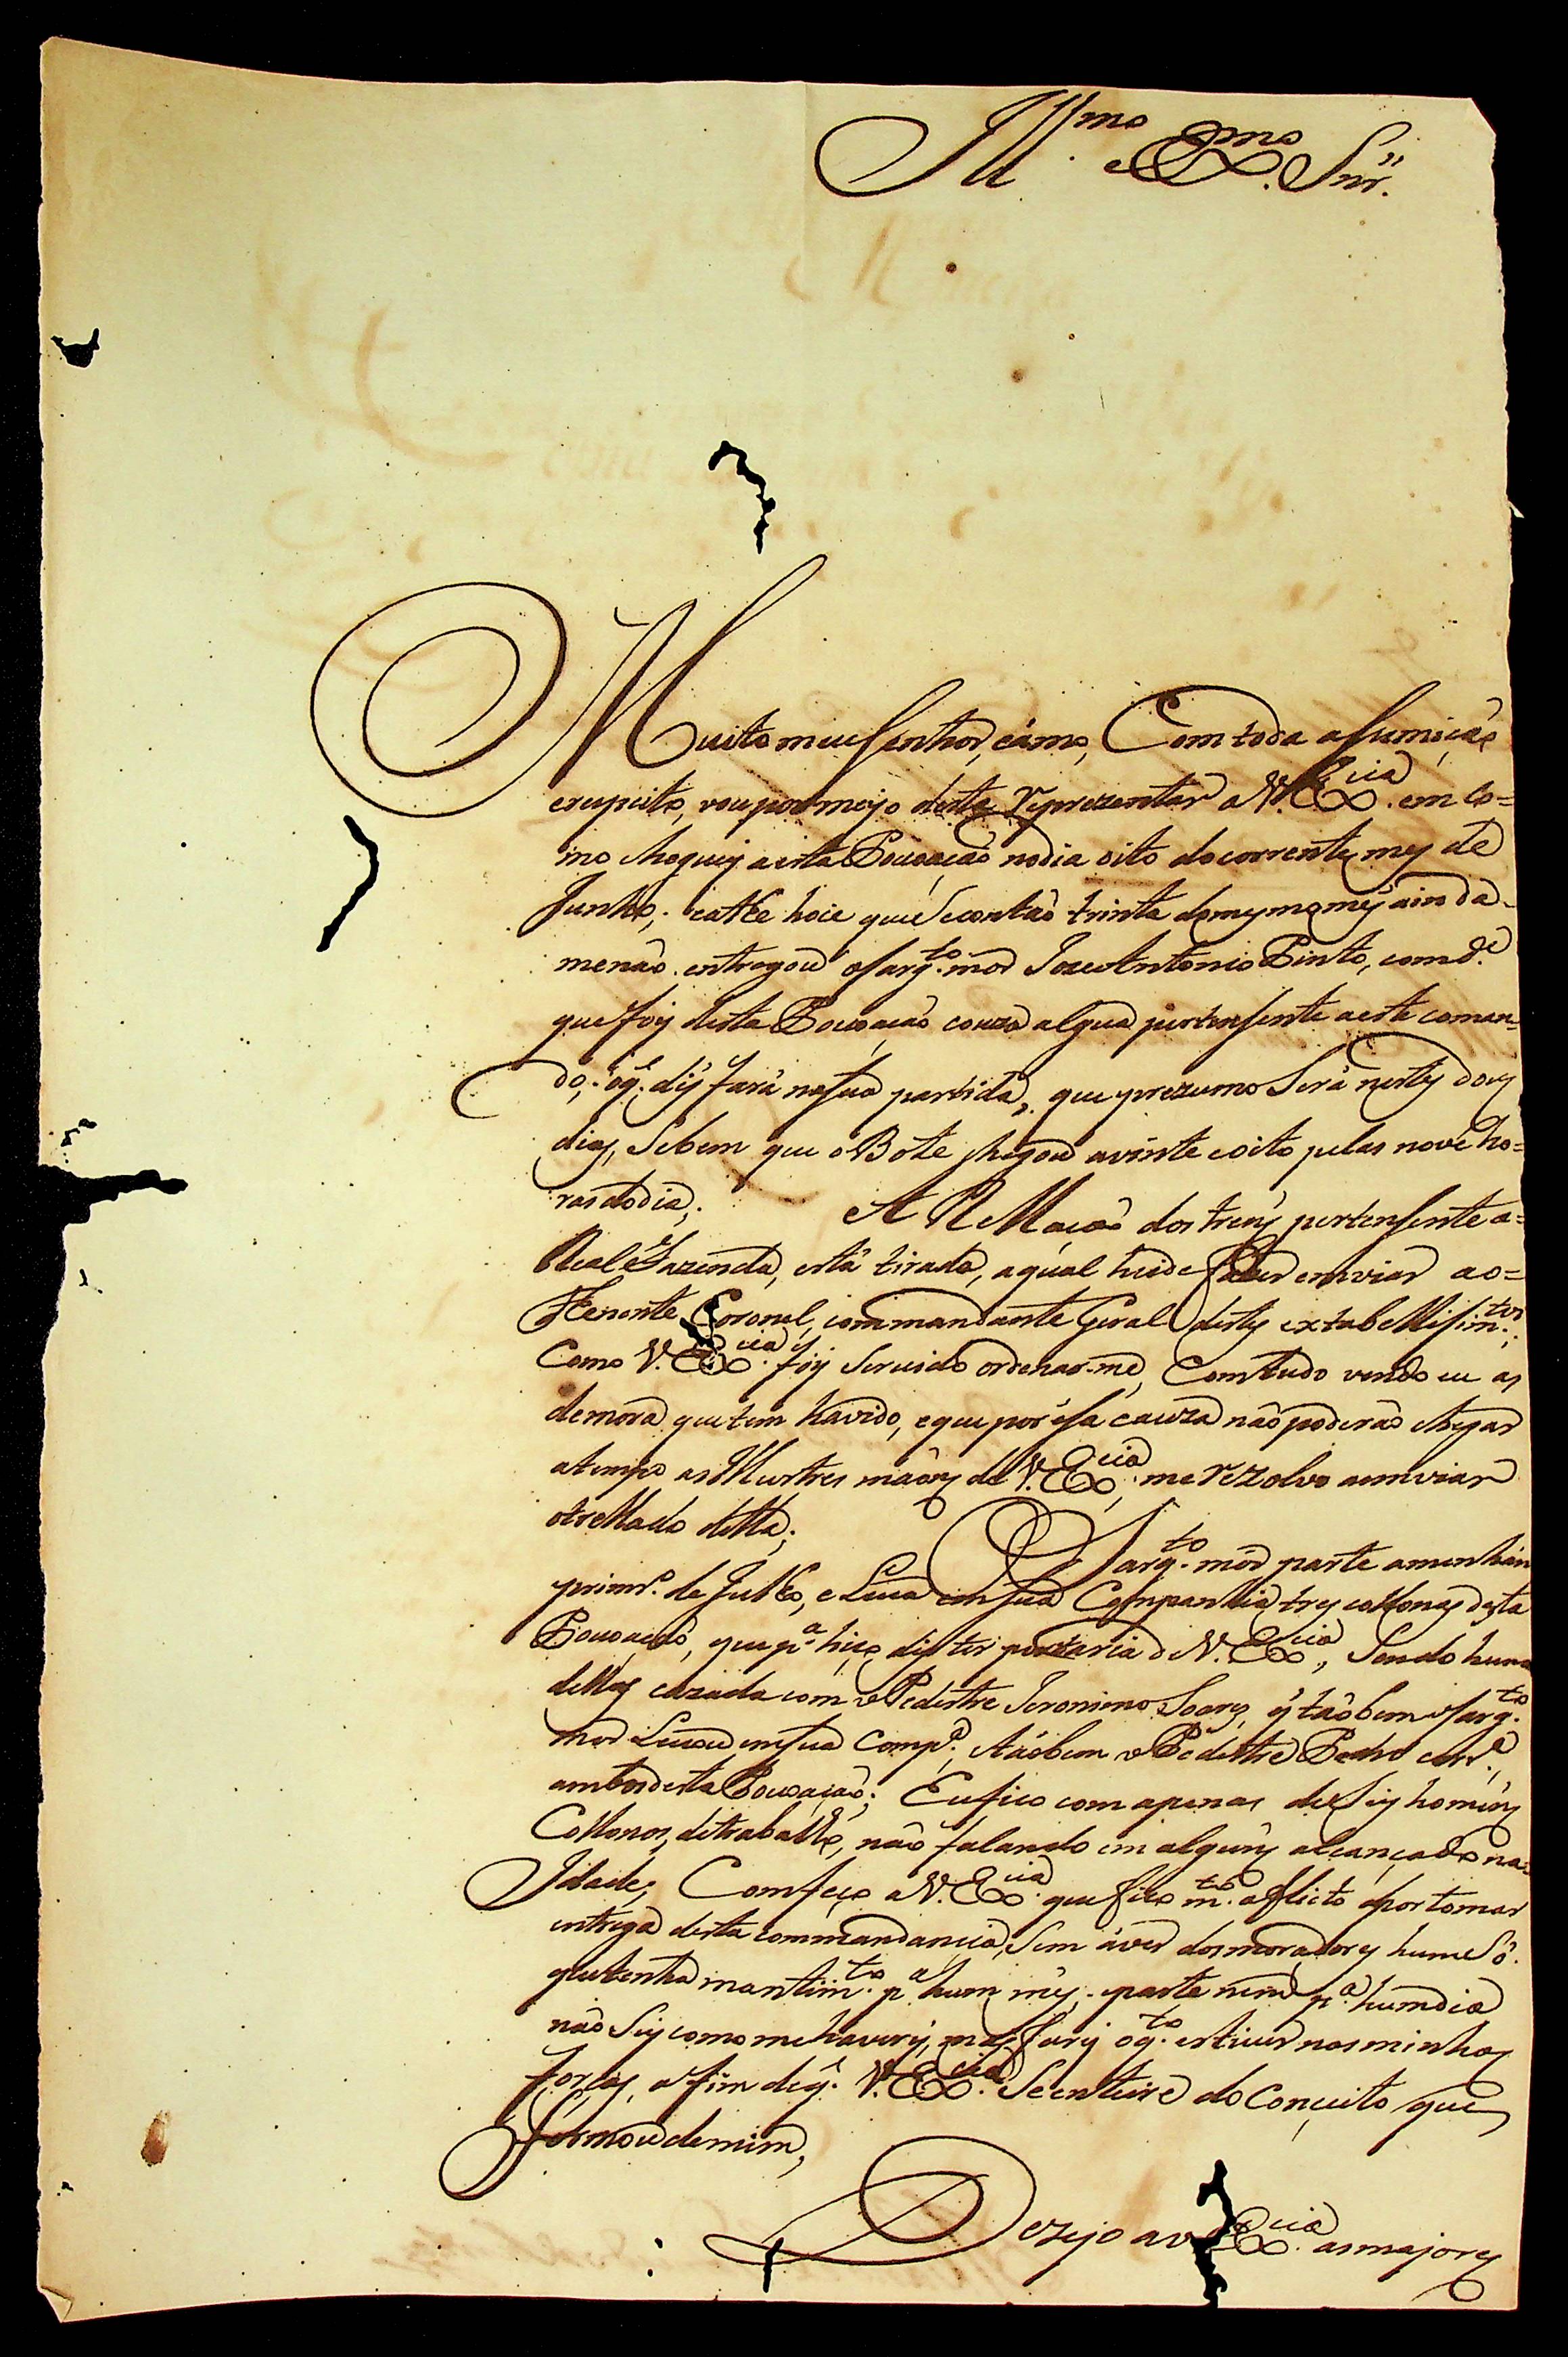 Ill.mo e Ex.mo Snr.
Muito meu Senhor, e amo, Com toda a sumição
e respeito, vou por mejo desta reprezentar a V. Ex.cia em co=
mo cheguej a esta Povoação no dia oito do corrente mes de
Junho; e athe hoie que se contão trinta do mesmo mes ainda
me não entregou o Sarg.to mor Joze Antonio Pinto, comd.e
que foy desta Povoação couza algua pertensente a este coman
do, o q. dis fará na sua partida, que prezumo será nestes dous
dias, Se bem que o Bote chegou a vinte e oito pelas nove ho=
ras do dia; A Rellação dos trens pertensente a=
Real Fazenda, está tirada, a qual hei de fazer enviar ao=
Tenente Coronel, commandante Geral destes extabellisim.tos,
Como V. Ex.cia foy Servido ordenar-me, Comtudo vendo eu as
demora que tem havido, e que por esa cauza não poderão chegar
a tempo as Illustres mãos de V. Ex.cia, me rezolvo a enviar
o treslado della;
O Sarg.to mor parte amenhãn
primr.o de Julho, e Leva em sua Companhia tres collonas desta
Povoação, que p.a hiço dis ter portaria de V. Ex.cia, Sendo huma
dellas cazada com o Pedestre Jeronimo Soares, q. tãobem o Sarg.to
mor Levou em sua Comp.a, e tãobem o Pedestre Pedro
ambos desta Povoação; Eu fico com apenas deSeis homens
Collonos, de trabalho, não falando em alguns alcançados na
Idade; Comfeço a V. Ex.cia que fico m.to aflicto por tomar
entrega desta commandancia, Sem aver dos moradores hum Só
que tenha mantim.to p.a hum mes, e parte nem p.a hum dia
não Sej como me haverej, mas farej o q.to estiver nas minhas
forças, a fim de q. V. Ex.cia Se enteire do Conceito que
formou de mim,
Dezejo a V. Ex.cia as majores